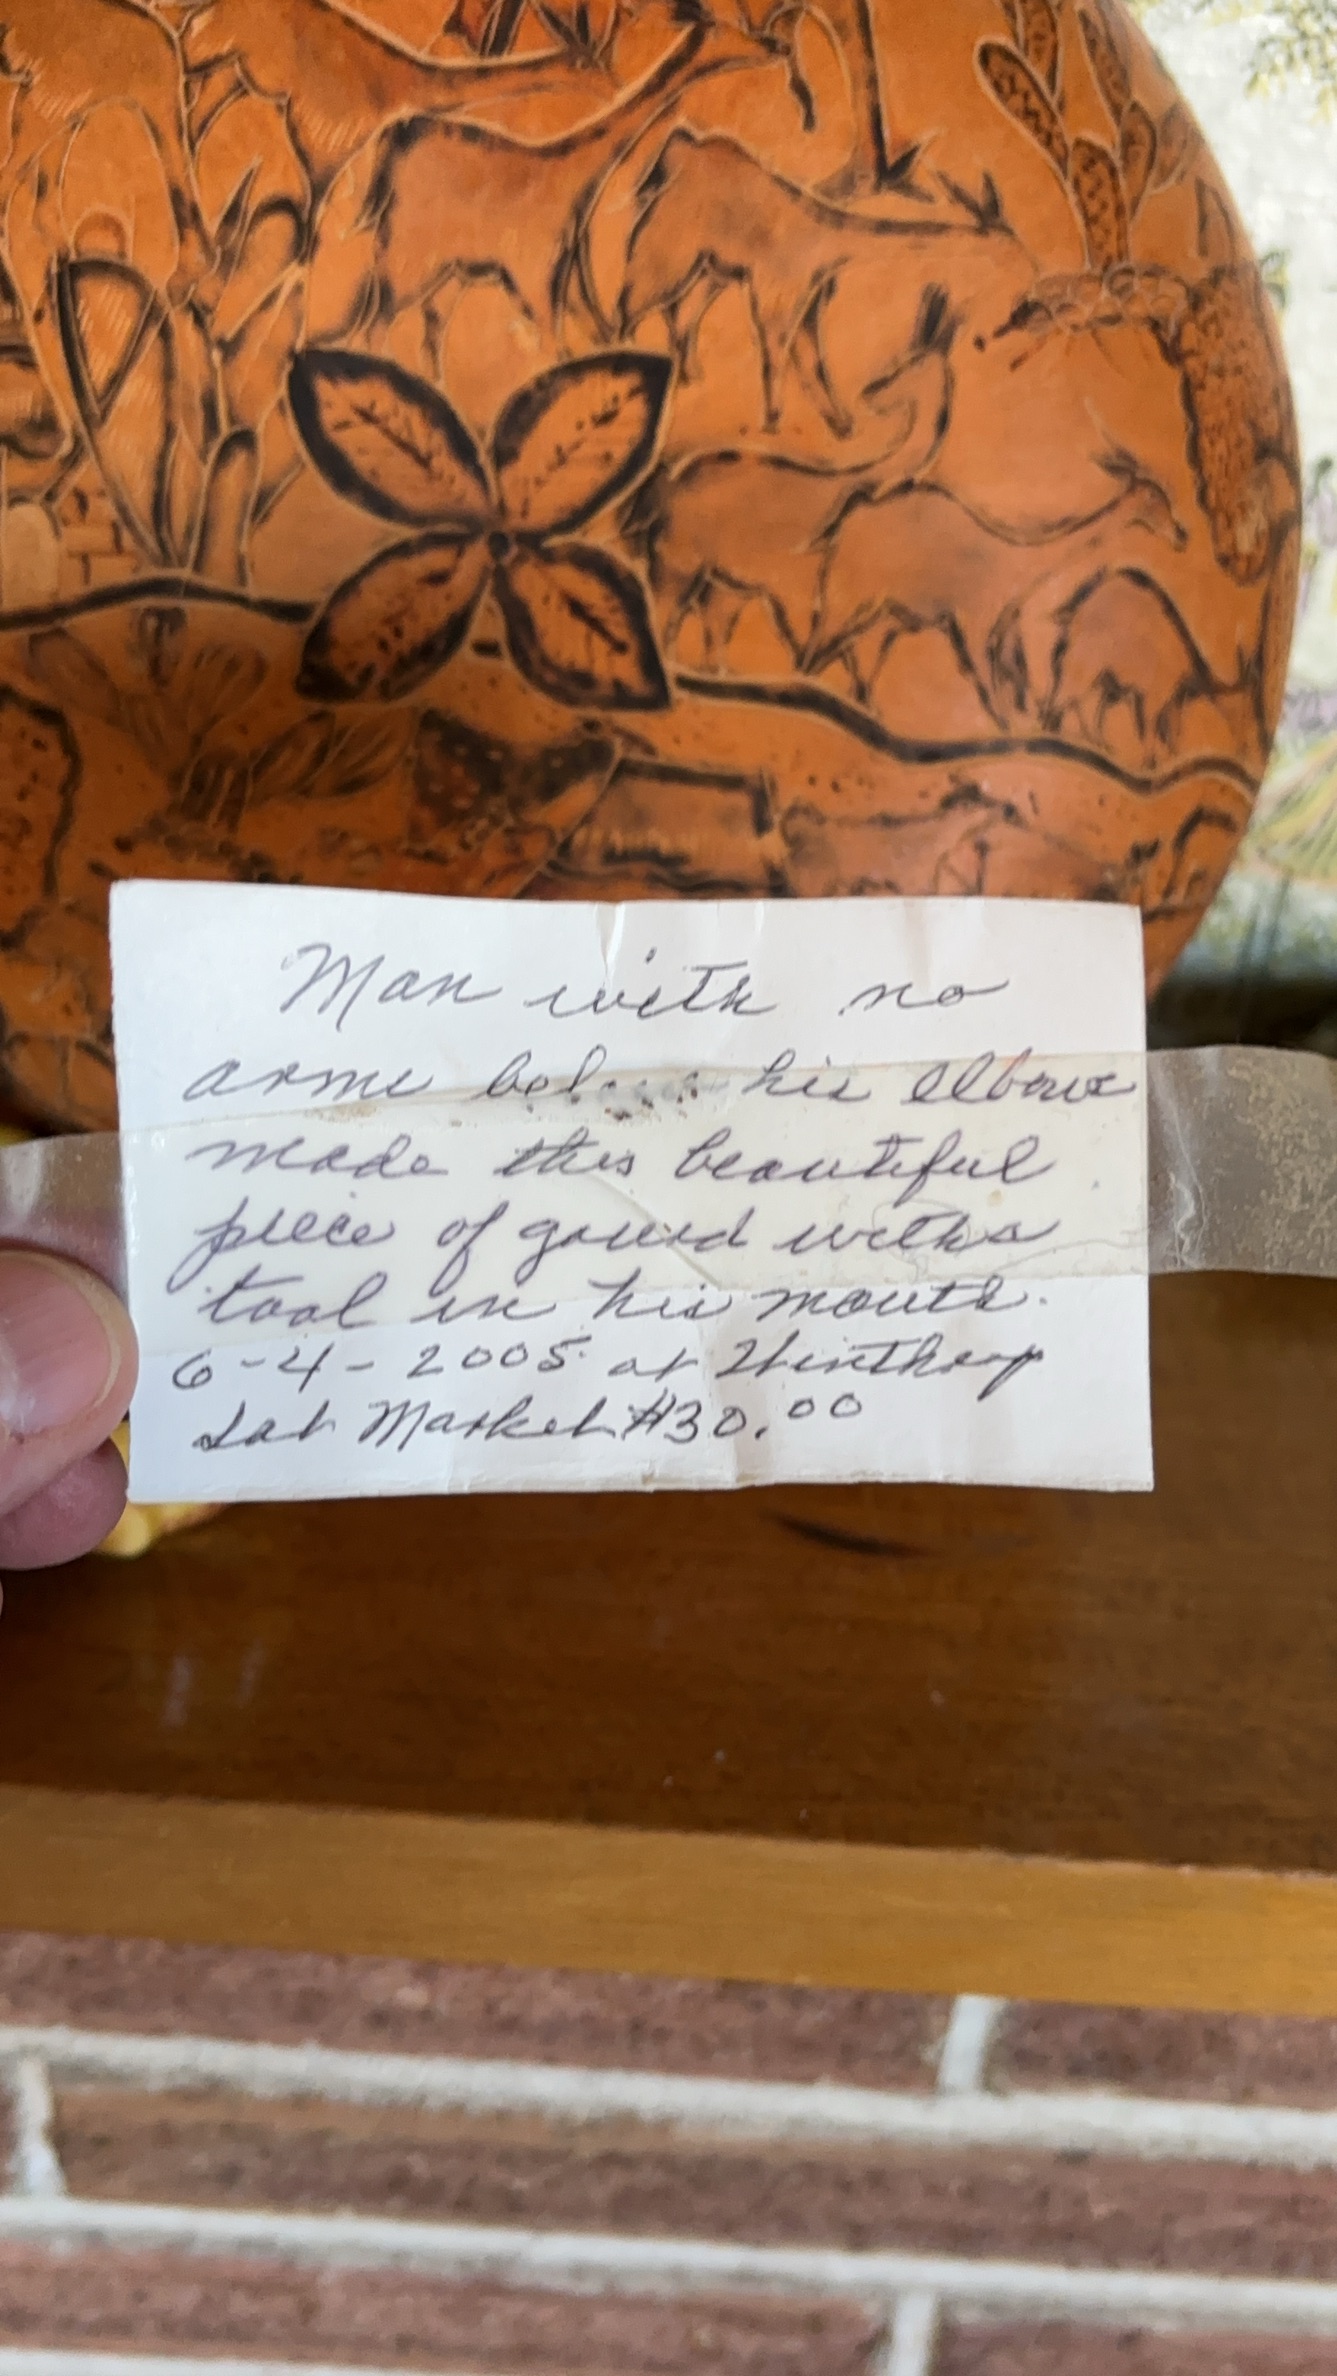 Man with no
arms his elbows
made this beautiful
piece of gourd with a
tool in his mouth.
6-4-2005 at Winthrop
Sat Market $30.00